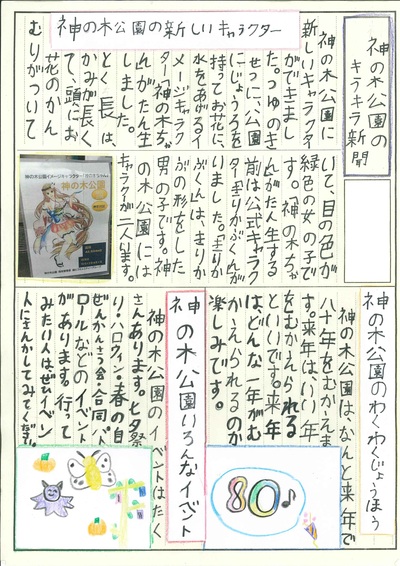 神の木公園の
キラキラ新聞
神の木公園の新しいキャラクター
神の木公園に
新しいキャラクタ
ーができまし
た。つゆのき
せつに、公園
にじょうろを
持ってお花に、
水をあげるイ
メージキャラク
ター「神の木ちゃ
ん」がたん生
しました。
とく長は、
かみが長く
て、頭にお
花のかん
むりがついて
いて、目の色が
緑色の女の子で
す。「神の木ちゃ
ん」がたん生する
前は公式キャラク
ター「きりかぶくん」が
いました。「きりか
ぶくん」は、きりか
ぶの形をした
男の子です。神
の木公園には
キャラクターが二人います。
神の木公園イメージキャラクター
神の木公園
神の木公園のわくわくじょうほう
神の木公園は、なんと来年で
八十年をむかえま
す。来年は、いい年
をむかえられる
といいです。来年
は、どんな一年がむ
かえられるのか
楽しみです。
80♪
神の木公園いろんなイベント
神の木公園のイベントはたく
さんあります。七夕祭
り・ハロウィン・春の自
ぜんかんさつ会・合同パト
ロールなどのイベント
があります。行って
みたい人は、ぜひイベン
トにさんかしてみてください!